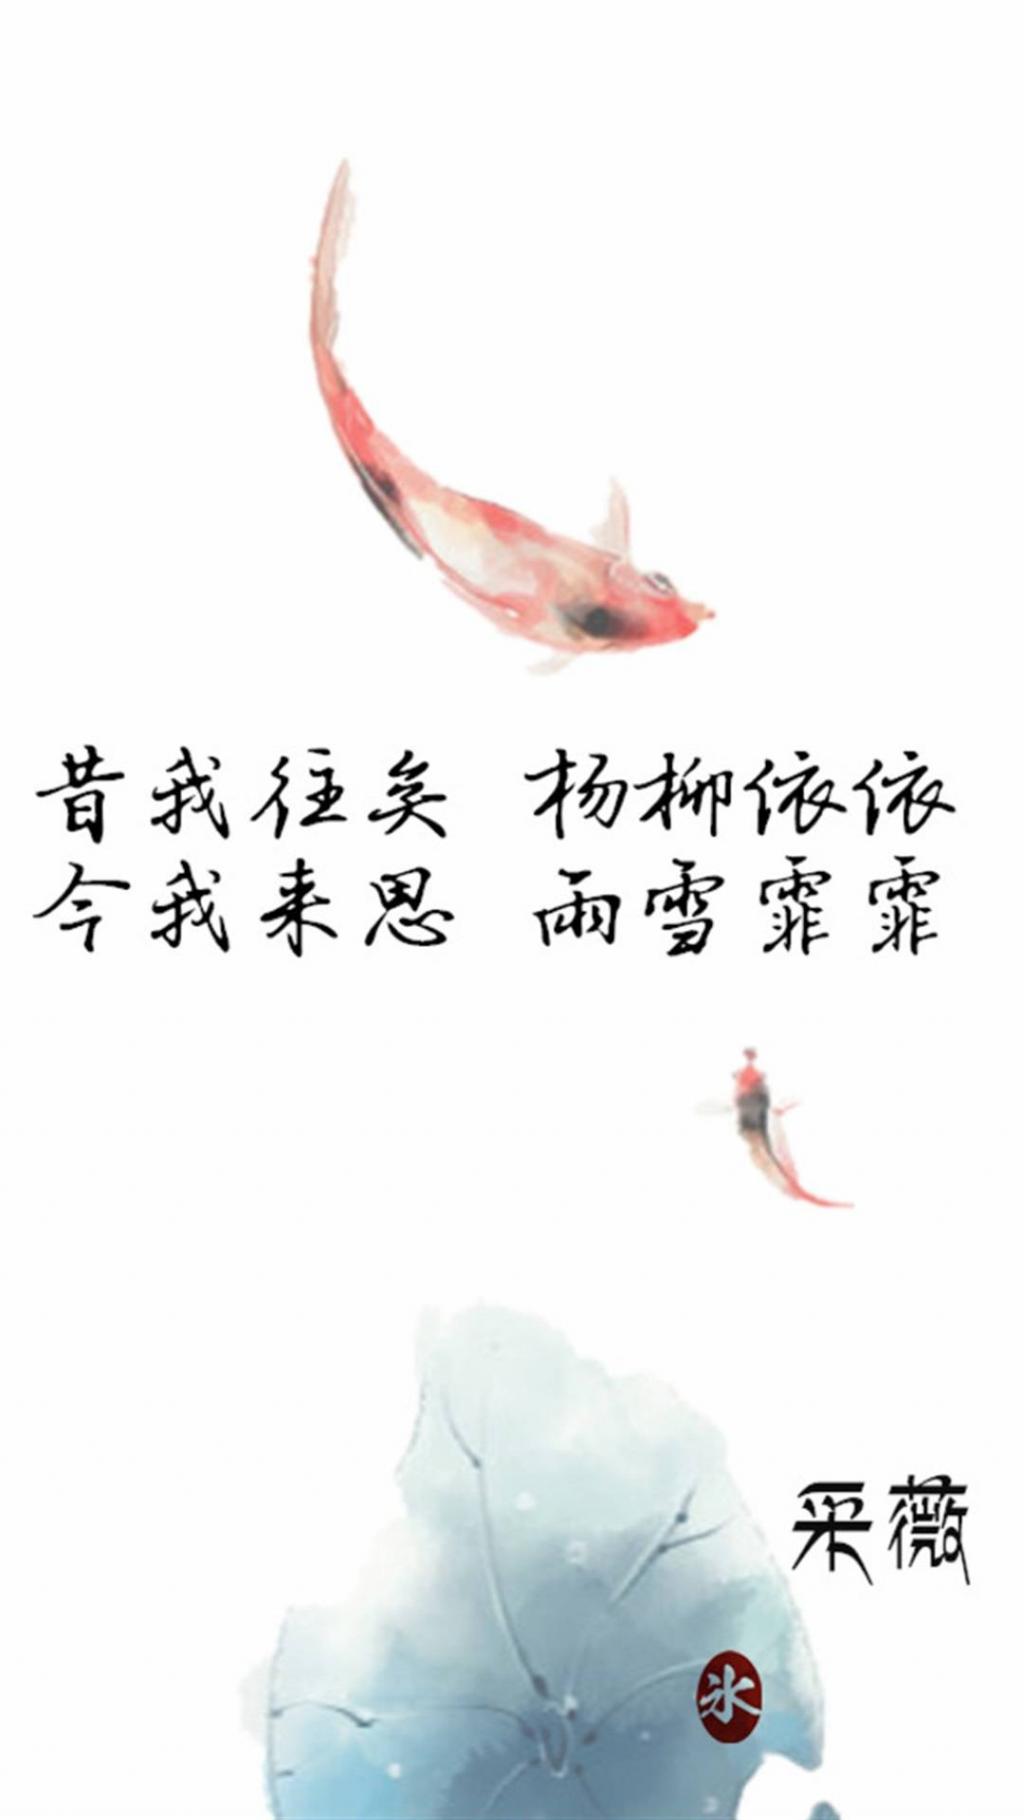 昔我往矣 杨柳依依
今我来思 雨雪霏霏
采薇
氷